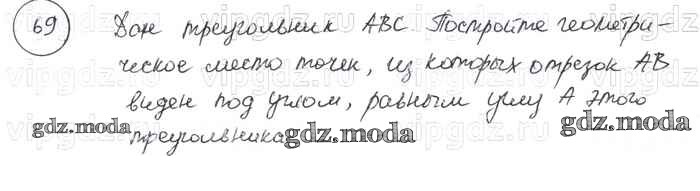 69 Дан треугольник ABC. Постройте геометри-
ческое место точек, из которых отрезок AB
виден под углом, равным углу A этого
треугольника
gdz.moda
gdz.moda
gdz.moda
vipgdz.ru